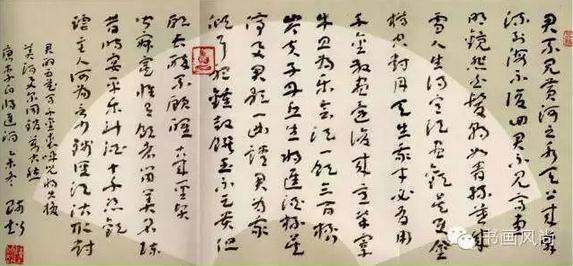 君不见黄河之水天上来奔
流到海不复回君不见高堂
明镜悲白发朝如青丝暮成
雪人生得意须尽欢莫使金
樽空对月天生我材必有用
千金散尽还复来烹羊宰
牛且为乐会须一饮三百杯
岑夫子丹丘生将进酒杯莫
停与君歌一曲请君为我
倾耳听钟鼓馔玉不足贵但
愿长醉不愿醒古来圣贤
皆寂寞惟有饮者留其名陈
昔时宴平乐斗酒十千恣欢
谑主人何为言少钱径须沽取对
君酌五花马千金裘呼儿将出换
美酒与尔同销万古愁
将进酒乙未冬
书画风尚